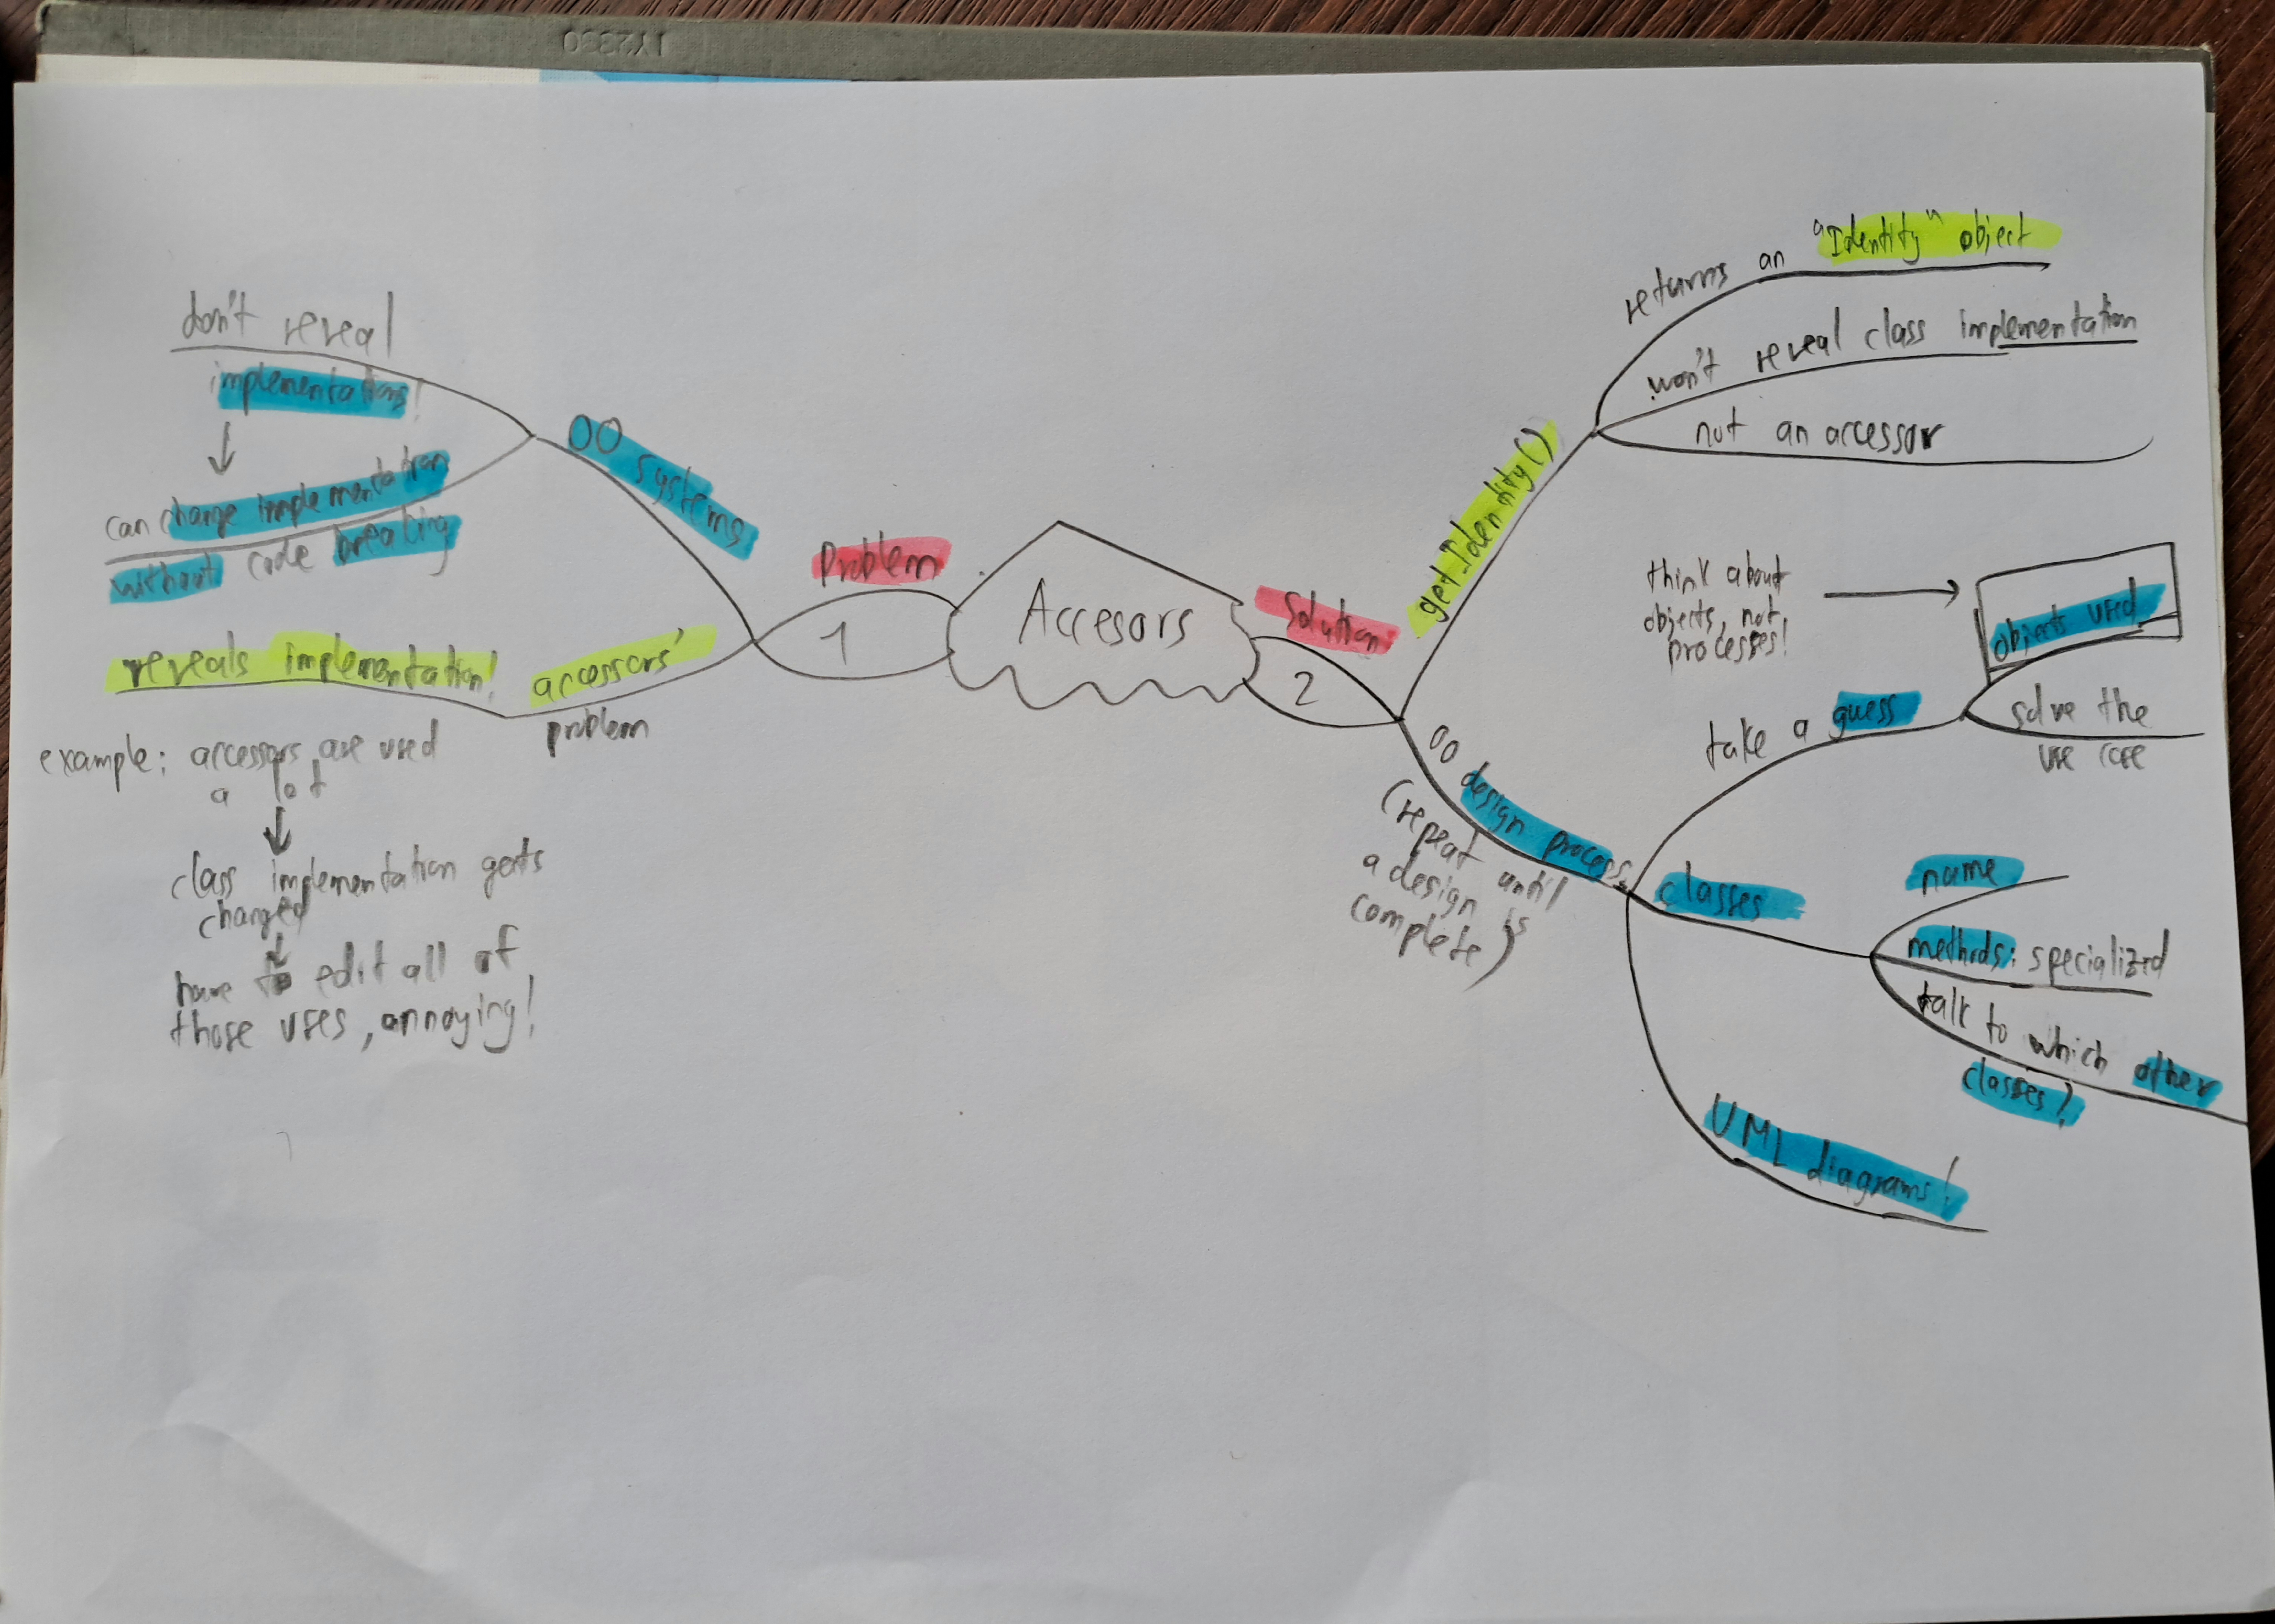 1Y2330
Accesors
1
Problem
OO systems
don't reveal
implementations!
can change implementation
without code breaking
accessors'
problem
reveals implementation!
example: accessors are used
a lot
class implementation gets
changed
have to edit all of
those uses, annoying!
2
Solution
getIdentity()
returns an "Identity" object
won't reveal class implementation
not an accessor
OO design process
(repeat until
a design is
complete)
take a guess
objects used
think about
objects, not
processes!
solve the
use case
classes
name
methods: specialized
talk to which other
classes?
UML diagrams!